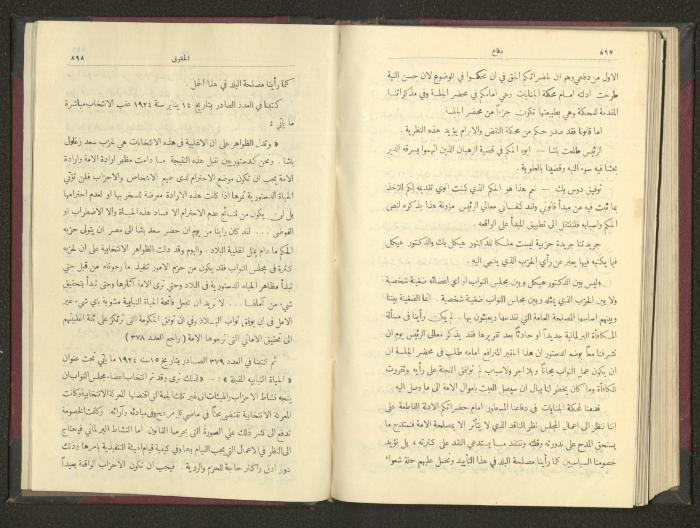 ٨٩٧
دفاع
الاول من دفاعي وهو ان لحضراتكم الحق في ان تحكموا في الموضوع لان حسن النية
طرحت ادلته امام محكمة الجنايات وهي أمامكم في محضر الجلسة وفي مذكراتنا
المقدمة للمحكمة وهي بطبيعتها تكون جزءاً من محضر الجلسة
اما قانونا فقد صدر حكم من محكمة النقض والابرام يؤيد هذه النظرية .
الرئيس طلعت باشا — ايوه الحكم في قضية الرهبان الذين اتهموا بسرقه الدير
بحثنا فيه سوء النية وقضينا بالعقوبة .
توفيق دوس بك — نعم هذا هو الحكم الذي كنت انوي تقديمه لكم للاخذ
بما ثبت فيه من مبدأ قانوني ولقد كفاني معالي الرئيس مؤونة هذا بذكره لنص
الحكم واسبابه فلننتقل الى تطبيق المبدأ على الوقائع .
جريدتنا جريدة حزبية ليست ملكا للدكتور هيكل بك والدكتور هيكل
فيما يكتبه فيها يعبر عن رأي الحزب الذي ينتمي اليه
وليس بين الدكتور هيكل وبين مجلس النواب او اي اعضائه ضغينة شخصية
ولا بين الحزب الذي يمثله وبين مجلس النواب ضغينة شخصية . انما الضغينة بيننا
وبينهم اساسها المصلحة العامة التي نقدسها ويعبثون بها . لم يكن رأينا في مسألة
المكافأة البرلمانية جديداً او حادثاً بعد تقريرها فقد يذكر معالي الرئيس يوم ان
تشرفنا معاً بوضع الدستور ان هذا الحقير المترافع امامه طلب في محضر الجلسة ان
ان يكون عمل النواب مجاناً بلا اجر ولاسباب لم توافق اللجنة على رأيه وتقررت
المكافأة وما كان يخطر لنا ببال ان سيصل العبث باموال الامة الى ما وصل اليه .
قدمنا لمحكمة الجنايات في دفاعنا المسطور امام حضراتكم الادلة القاطعة على
اننا ننظر الى اعمال المجلس نظر الناقد الذي لا يتأثر الا بمصلحة الامة فنمتدح ما
يستحق المدح على ندورته وقلته وننتقد ما يستدعي النقد على كثرته ، بل نؤيد
خصومنا السياسيين كما رأينا مصلحة البلد في هذا التأييد ونحمل عليهم حملة شعواء
الحقوق
٨٩٨
كما رأينا مصلحة البلد في هذا الحمل .
كتبنا في العدد الصادر بتاريخ ١٤ يناير سنة ١٩٢٤ عقب الانتخاب مباشرة
ما يأتي :
« وتدل الظواهر على ان الاغلبية في هذه الانتخابات هي لحزب سعد زغلول
باشا . ونحن كدستوريين نقبل هذه النتيجة ما دامت مظهر ارادة الامة وارادة
الامة يجب ان تكون موضع الاحترام لدى جميع الاشخاص والاحزاب فلن تؤتي
الحياة الدستورية ثمرها اذا كانت هذه الارادة معرضة لمسخر بها او لعدم احترامها
بل لن يكون من نتائج عدم الاحترام الا فساد هذه الحياة والا الاضطراب او
الفوضى ... لقد كان راينا من يوم ان حضر سعد باشا الى مصر ان يتولى حزبه
الحكم ما دام يمثل اغلبية البلاد . واليوم وقد دلت الظواهر الانتخابية على ان لحزبه
كثرة في مجلس النواب فقد يكون من حزم الامور تنفيذ ما رجوناه من قبل حتي
تبدأ مظاهر الحياة الدستورية في البلاد وحتى ترى الامة آثارها وحتى تبدأ بتحقيق
شيء من آمالها .... لا نريد ان نجعل فاتحة الحياة النيابية مشوبة باي شيء غير
الامل فى ان يوفق نواب البلاد وفي ان توفق الحكومة التى ترتكز على ثقة اغلبيتهم
الى تحقيق الاماني التي ترجوها الامة (راجع العدد ٣٧٨ )
ثم كتبنا في العدد ٣٧٩ الصادر بتاريخ ١٥ سنة ١٩٢٤ ما يأتي تحت عنوان
« الحياة النيابيه المقبلة » : — « لذلك نرى وقد تم انتخاب اعضاء مجلس النواب ان
يتجه نشاط الاحزاب والهيئات الى غير تلك الجهة التي اقتضتها المعركة الانتخابية وكانت
المعركة الانتخابية تقتضي بحثاً في ماضي كل مرشح وفي مبادئه وآرائه . وكانت الخصومة
تدفع الى نشر ذلك على الصورة التى يحرمها القانون . اما النشاط البرلماني فيحتاج
الى النظر في الاعمال التي يجب القيام بها وفي كيفية قيام الهيئة التنفيذية بامرها وذلك
دور ادق واكثر حاجة للحزم والروية . فيجب ان تكون الاحزاب الواقفة بعيداً